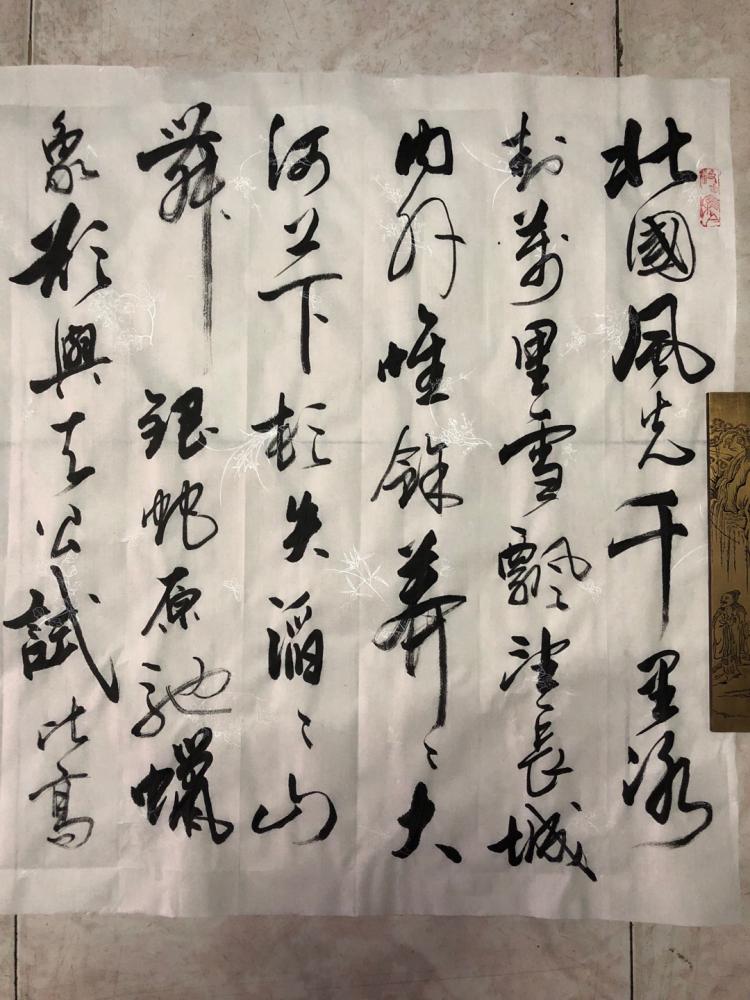 北國風光千里冰
封萬里雪飄望長城
内外惟餘莽〻大
河上下頓失滔〻山
舞銀蛇原馳蠟
象欲與天公試比高